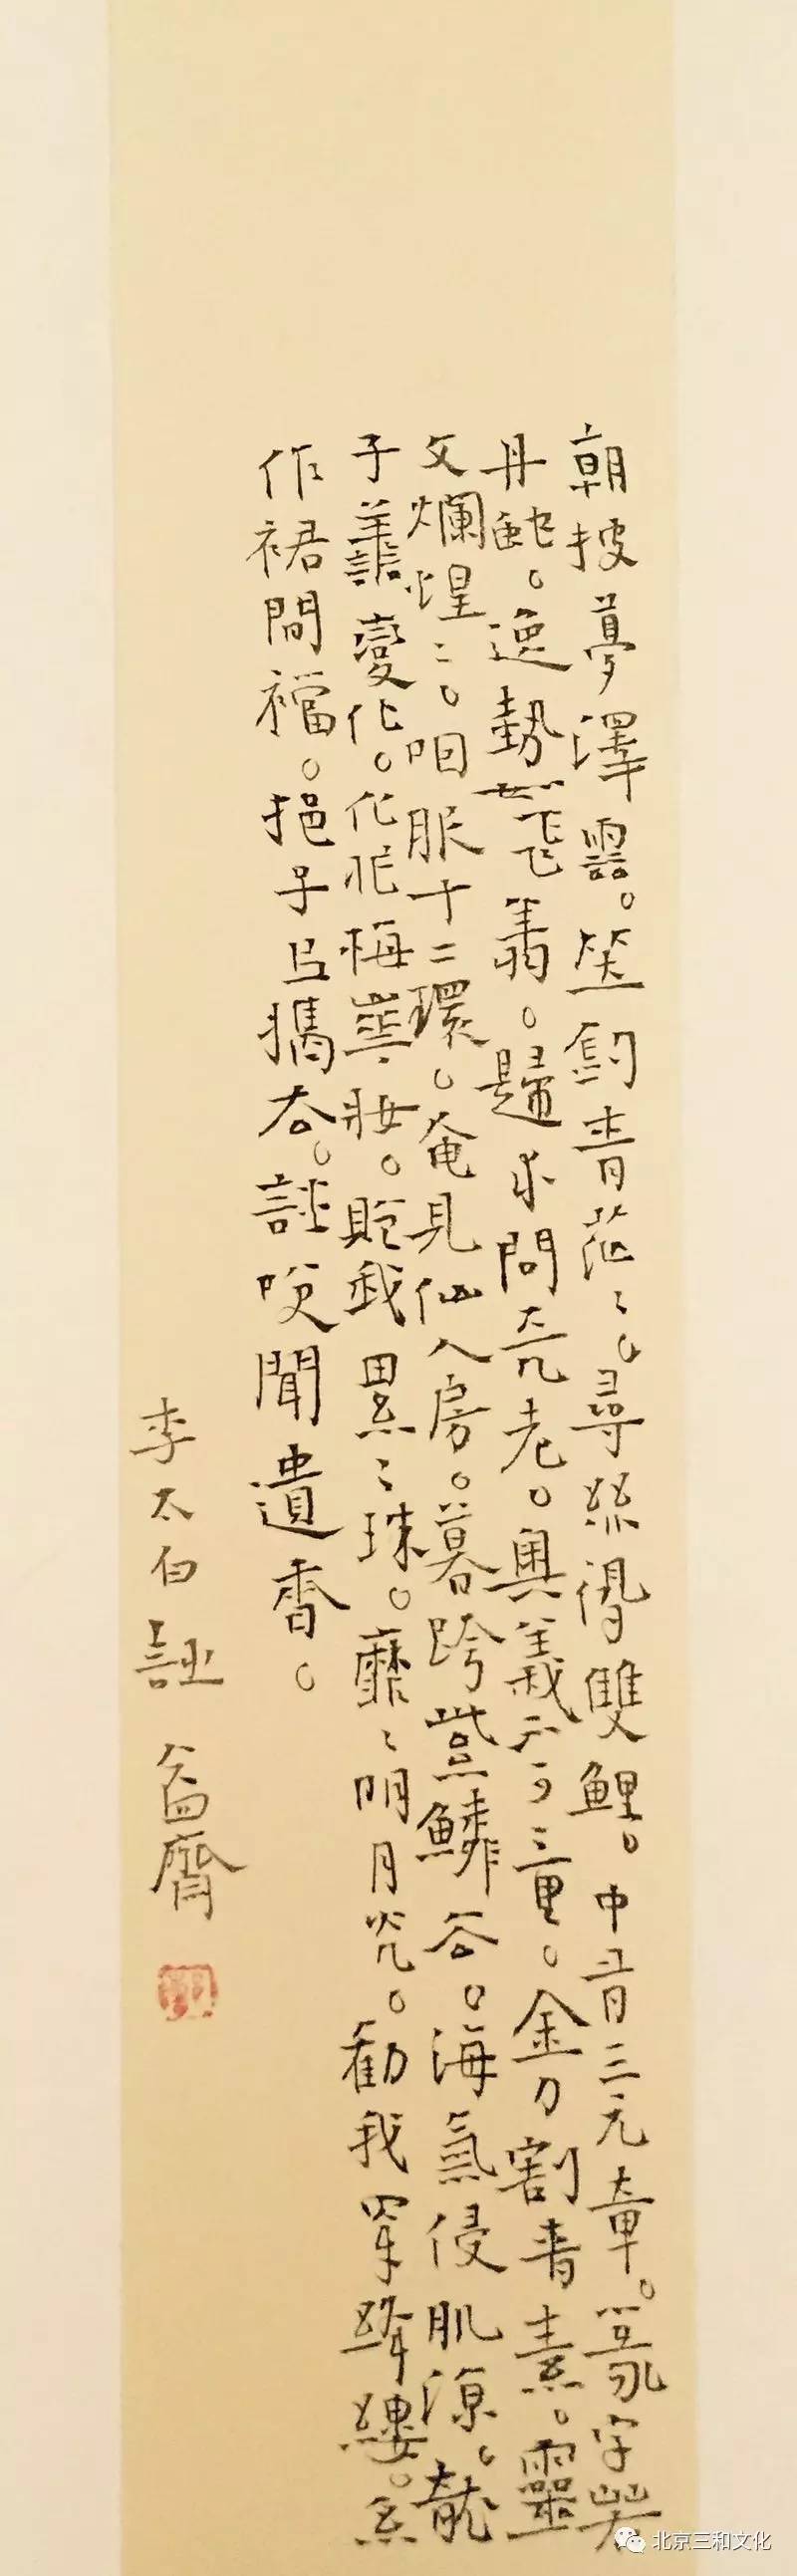 朝披夢澤雲。笠釣青茫〻。尋絲得雙鯉。中有三元章。篆字若
丹蛇。逸勢如飛翔。歸來問天老。奧義不可量。金刀割青素。靈
文爛煌〻。咽服十二環。奄見仙人房。暮跨紫鱗去。海氣侵肌涼。龍
子善變化。化作梅華妝。貽我累〻珠。靡〻明月光。勸我穿絳縷。系
作裙間襠。挹子以攜去。談笑聞遺香。
李太白詩 益齋
北京三和文化